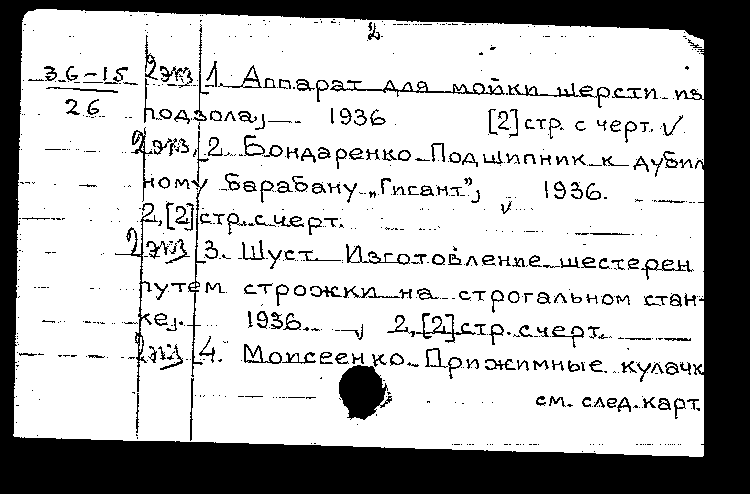 2
36-15 2 экз 1. Аппарат для мойки шерсти из
26 подзола, — 1936 [2] стр. с черт. ✓
2 экз. 2. Бондаренко. Подшипник к дубил
ному барабану „Гигант”, 1936.
2,[2] стр. с черт. ✓
2 экз 3. Шуст. Изготовление шестерен
путем строжки на строгальном стан-
ке,. 1936. , 2,[2] стр. с черт.
2 экз 4. Моисеенко. Прижимные кулачк
см. след. карт.